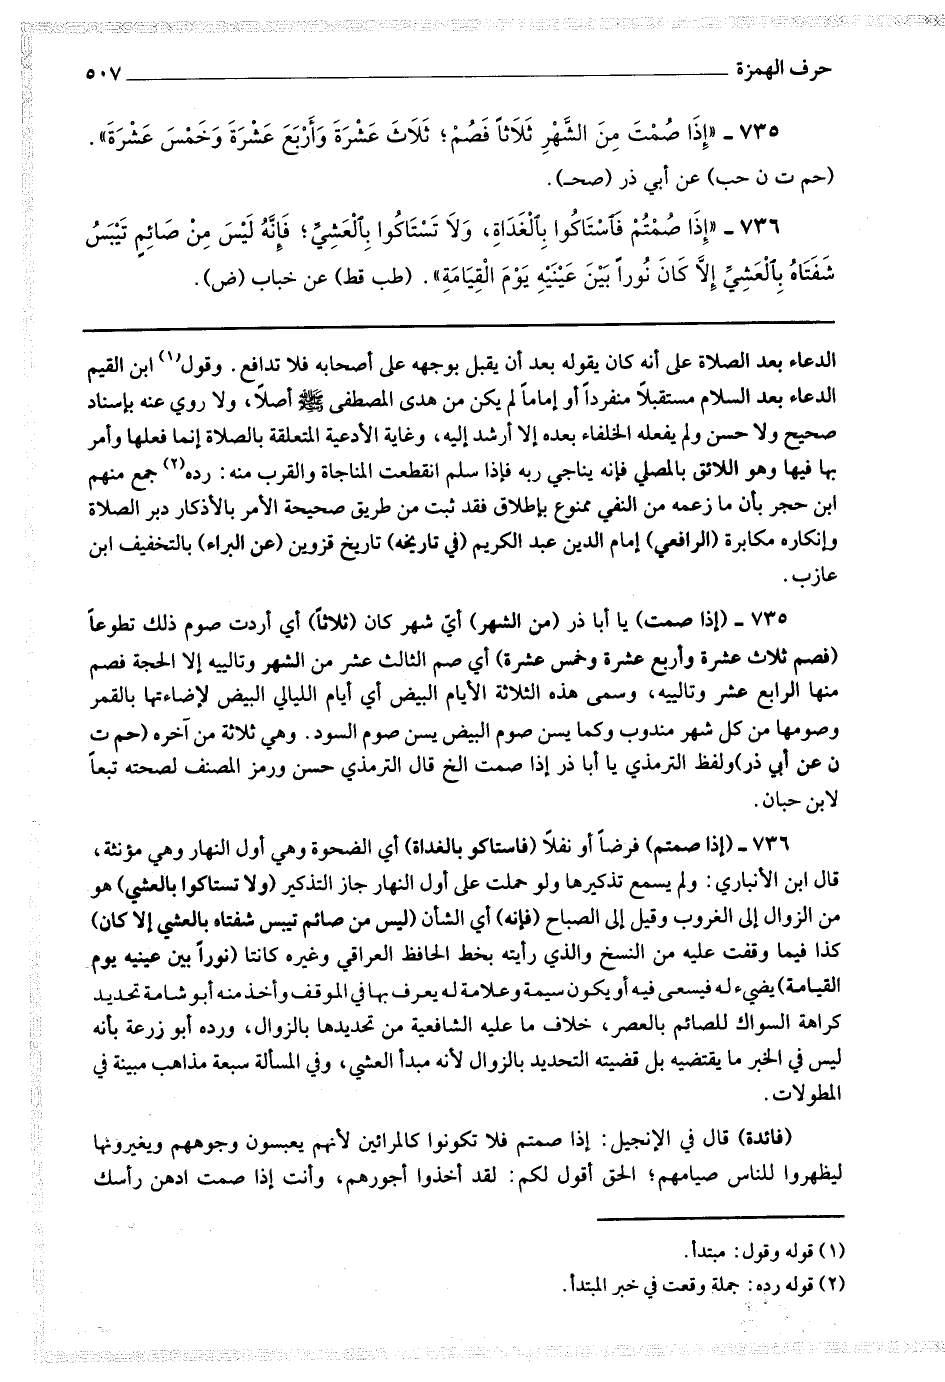 حرف الهمزة ٥٠٧
٧٣٥ ـ «إِذَا صُمْتَ مِنَ الشَّهْرِ ثَلَاثاً فَصُمْ؛ ثَلَاثَ عَشْرَةَ وَأَرْبَعَ عَشْرَةَ وَخَمْسَ عَشْرَةَ».
(حم ت ن حب) عن أبي ذر (صحـ).
٧٣٦ ـ «إِذَا صُمْتُمْ فَاسْتَاكُوا بِالْغَدَاةِ، وَلَا تَسْتَاكُوا بِالْعَشِيِّ؛ فَإِنَّهُ لَيْسَ مِنْ صَائِمٍ تَيْبَسُ
شَفَتَاهُ بِالْعَشِيِّ إِلَّا كَانَ نُوراً بَيْنَ عَيْنَيْهِ يَوْمَ الْقِيَامَةِ». (طب قط) عن خباب (ض).
الدعاء بعد الصلاة على أنه كان يقوله بعد أن يقبل بوجهه على أصحابه فلا تدافع. وقول(١) ابن القيم
الدعاء بعد السلام مستقبلاً منفرداً أو إماماً لم يكن من هدى المصطفى ﷺ أصلاً، ولا روي عنه بإسناد
صحيح ولا حسن ولم يفعله الخلفاء بعده إلا أرشد إليه، وغاية الأدعية المتعلقة بالصلاة إنما فعلها وأمر
بها فيها وهو اللائق بالمصلي فإنه يناجي ربه فإذا سلم انقطعت المناجاة والقرب منه: رده(٢) جمع منهم
ابن حجر بأن ما زعمه من النفي ممنوع بإطلاق فقد ثبت من طريق صحيحة الأمر بالأذكار دبر الصلاة
وإنكاره مكابرة (الرافعي) إمام الدين عبد الكريم (في تاريخه) تاريخ قزوين (عن البراء) بالتخفيف ابن
عازب.
٧٣٥ ـ (إذا صمت) يا أبا ذر (من الشهر) أيّ شهر كان (ثلاثاً) أي أردت صوم ذلك تطوعاً
(فصم ثلاث عشرة وأربع عشرة وخمس عشرة) أي صم الثالث عشر من الشهر وتالييه إلا الحجة فصم
منها الرابع عشر وتالييه، وسمى هذه الثلاثة الأيام البيض أي أيام الليالي البيض لإضاءتها بالقمر
وصومها من كل شهر مندوب وكما يسن صوم البيض يسن صوم السود. وهي ثلاثة من آخره (حم ت
ن عن أبي ذر)ولفظ الترمذي يا أبا ذر إذا صمت الخ قال الترمذي حسن ورمز المصنف لصحته تبعاً
لابن حبان.
٧٣٦ ـ (إذا صمتم) فرضاً أو نفلاً (فاستاكو بالغداة) أي الضحوة وهي أول النهار وهي مؤنثة،
قال ابن الأنباري: ولم يسمع تذكيرها ولو حملت على أول النهار جاز التذكير (ولا تستاكوا بالعشي) هو
من الزوال إلى الغروب وقيل إلى الصباح (فإنه) أي الشأن (ليس من صائم تيبس شفتاه بالعشي إلا كان)
كذا فيما وقفت عليه من النسخ والذي رأيته بخط الحافظ العراقي وغيره كانتا (نوراً بين عينيه يوم
القيامة) يضيء له فيسعى فيه أو يكون سيمة وعلامة له يعرف بها في الموقف وأخذ منه أبو شامة تحديد
كراهة السواك للصائم بالعصر، خلاف ما عليه الشافعية من تحديدها بالزوال، ورده أبو زرعة بأنه
ليس في الخبر ما يقتضيه بل قضيته التحديد بالزوال لأنه مبدأ العشي، وفي المسألة سبعة مذاهب مبينة في
المطولات.
(فائدة) قال في الإنجيل: إذا صمتم فلا تكونوا كالمرائين لأنهم يعبسون وجوههم ويغيرونها
ليظهروا للناس صيامهم؛ الحق أقول لكم: لقد أخذوا أجورهم، وأنت إذا صمت ادهن رأسك
(١) قوله وقول: مبتدأ.
(٢) قوله رده: جملة وقعت في خبر المبتدأ.